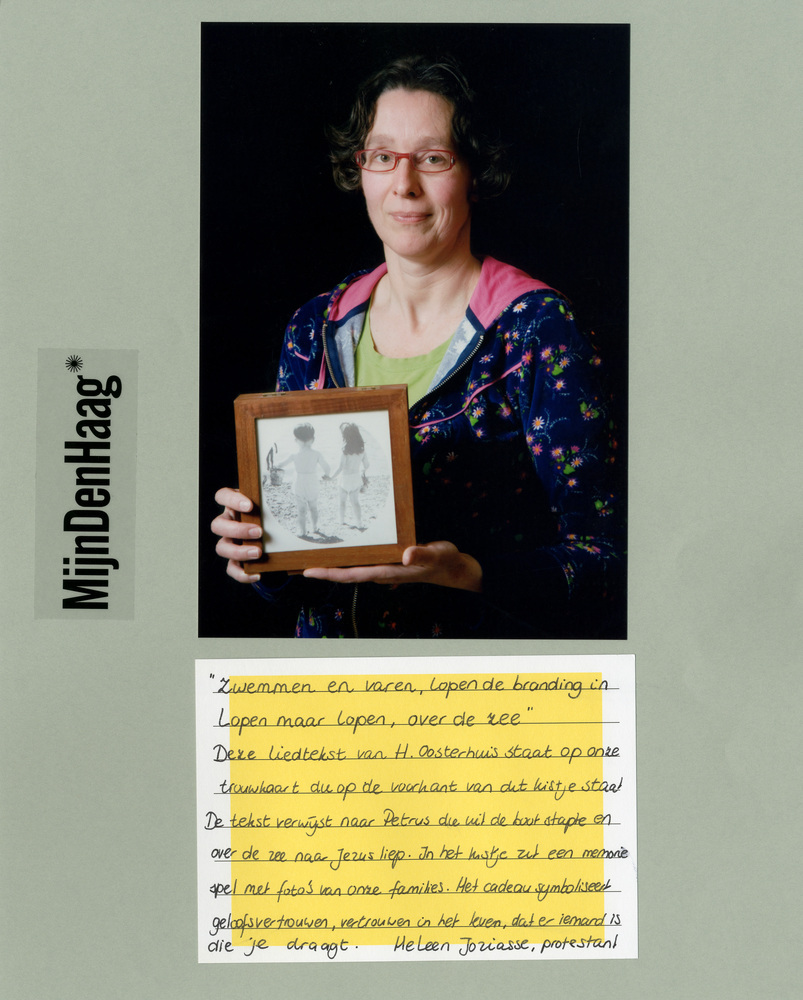 MijnDenHaag*
"Zwemmen en varen, lopen de branding in
Lopen maar lopen, over de zee"
Deze liedtekst van H. Oosterhuis staat op onze
trouwkaart die op de voorkant van dit kistje staat
De tekst verwijst naar Petrus die uit de boot stapte en
over de zee naar Jezus liep. In het kistje zit een memorie
spel met foto's van onze families. Het cadeau symboliseert
geloofsvertrouwen, vertrouwen in het leven, dat er iemand is
die je draagt. Heleen Joziasse, protestant